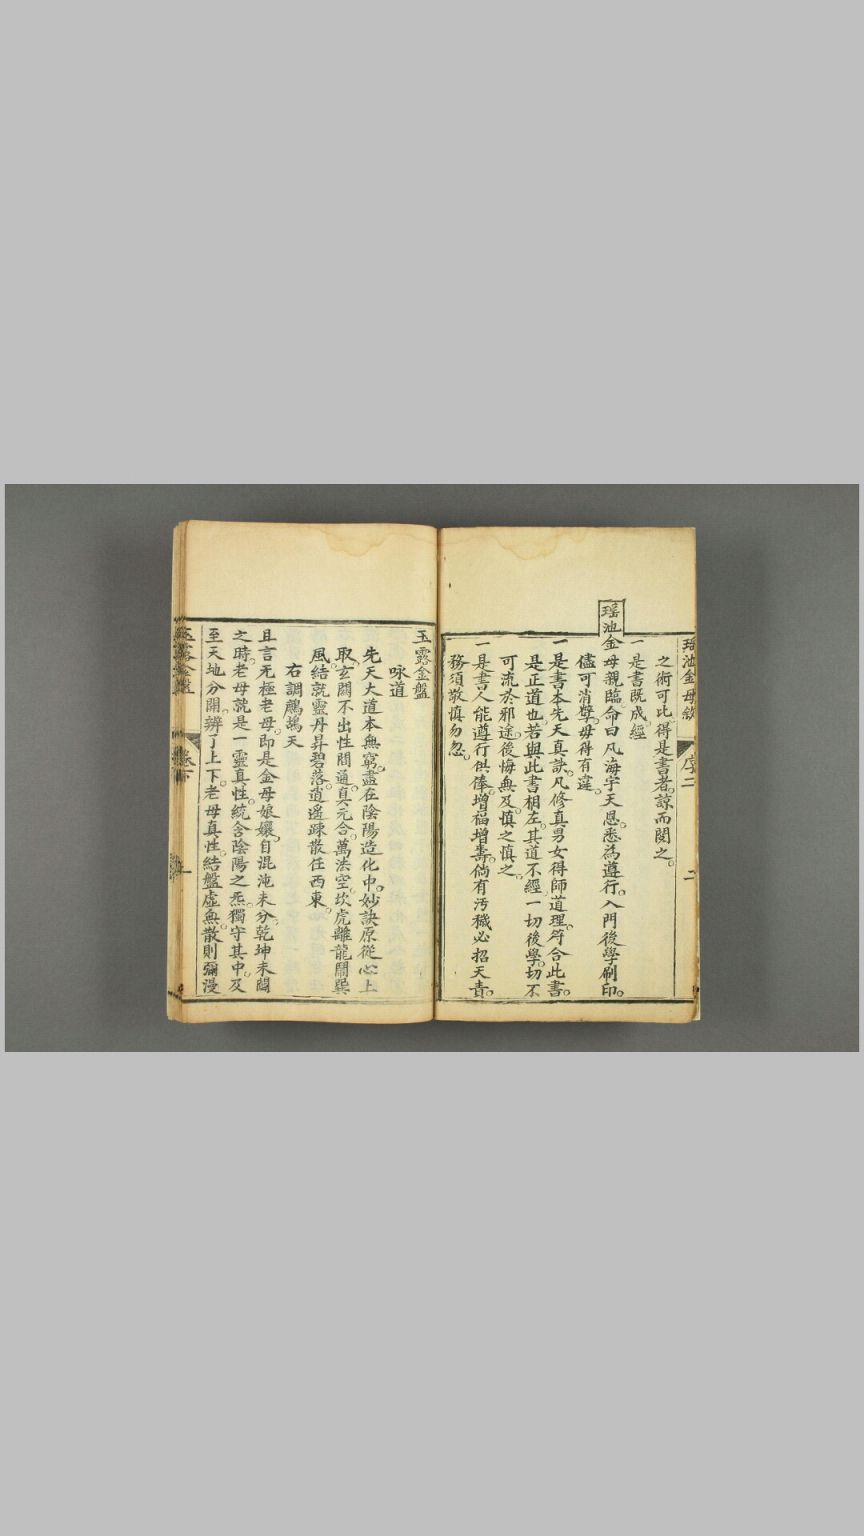 瑤池金母敘
序二
二
之術可比得是書者諒而閱之。
一是書既成經
瑤池金母親臨命曰凡海宇天恩。悉為遵行。入門後學刷印。
儘可消孽。毋得有違。
一是書本先天真訣。凡修真男女得師道理。符合此書。
是正道也。若與此書相左。其道不經一切後學。切不
可流於邪途。後悔無及。慎之慎之。
一是書人能遵行供俸。增福增壽。倘有污穢必招天責。
務須敬慎勿忽。
玉露金盤
咏道
先天大道本無窮。盡在陰陽造化中。妙訣原從心上
取。玄關不出性間通。真元合。萬法空。坎虎離龍鬧巽
風。結就靈丹昇碧落。逍遙踈散任西東。
右調鷓鴣天
且言无極老母。即是金母娘孃。自混沌未分。乾坤未闢
之時。老母就是一靈真性。統含陰陽之炁。獨守其中。及
至天地分開。辨了上下。老母真性。結盤虛無。散則彌漫
玉露金盤
卷下
一